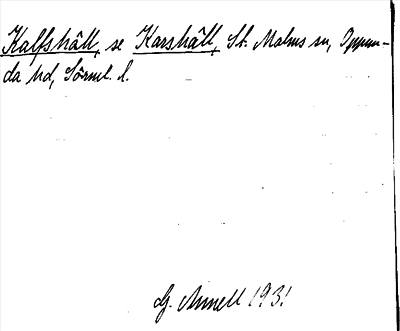 Kalfshäll, se Karshäll, St. Malms sn, Oppun-
da hd, Sörml. l.
G. Annell 1931